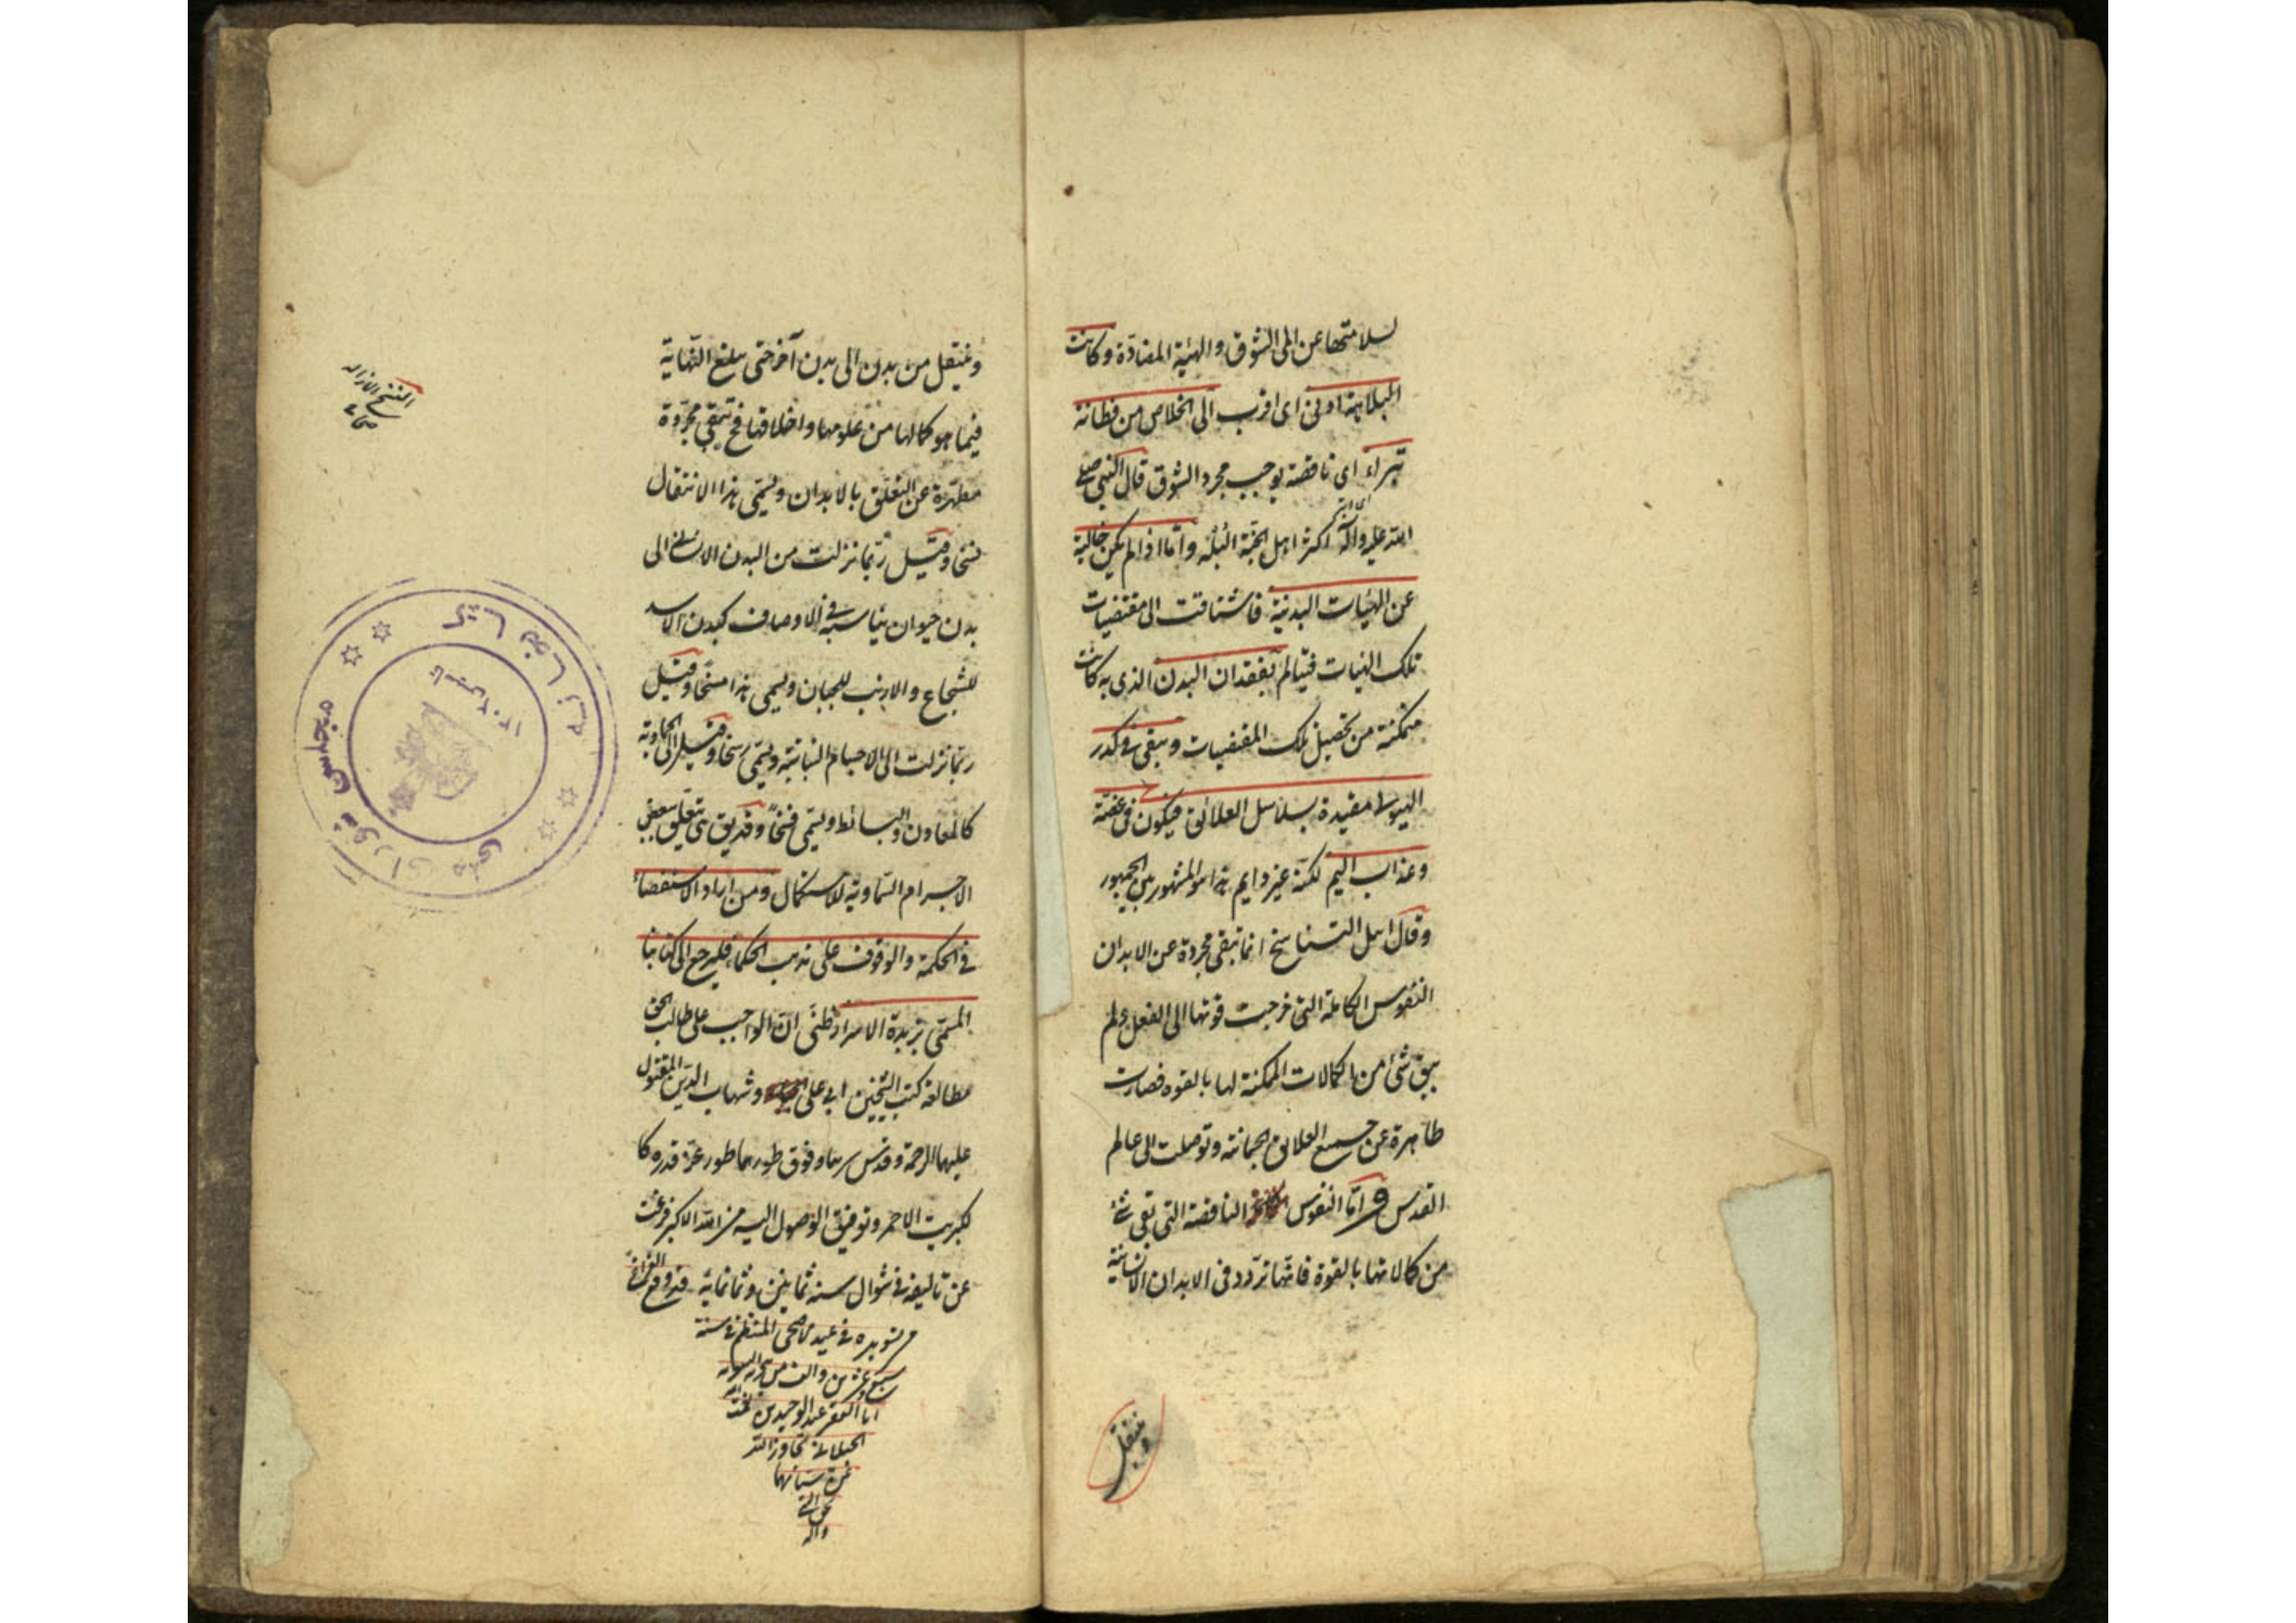 لسلامتها عن الم الشوق والهيئة المضادة وكانت
البلاهة ادنى اى اقرب الى الخلاص من فطانة
بتراء اى ناقصة يوجب مجرد الشوق قال النبى صلى
الله عليه وآله اكثر اهل الجنة البله واما اذا لم يكن خالية
عن الهيئات البدنية فاشتاقت الى مقتضيات
تلك الهيات فيتالم بفقدان البدن الذى به كانت
متمكنة من تحصيل تلك المقتضيات و يبقى فى كدر
الهيولى مقيدة بسلاسل العلائق فيكون فى غصّة
وعذاب اليم لكنه غير دايم هذا هو المشهور بين الجمهور
وقال اهل التناسخ انما تبقى مجردة عن الابدان
النفوس الكاملة التى خرجت قوتها الى الفعل ولم
يبق شئ من الكمالات الممكنة لها بالقوه فصارت
طاهرة عن جميع العلايق الجسمانية وتوصلت الى عالم
القدس و امّا النفوس الناقصة التى بقى شئ
من كمالاتها بالقوة فانها تردد فى الابدان الانسانية
وينتقل
وينتقل من بدن الى بدن آخر حتى يبلغ النّهاية
فيما هو كمالها من علومها واخلاقها فح تبقى مجرّدة
مطهّرة عن التعلّق بالابدان ويسمّى هذا الانتقال
نسخا وقيل ربّما نزلت من البدن الانسانى الى
بدن حيوان يناسبه فى الاوصاف كبدن الاسد
للشجاع والارنب للجبان ويسمى هذا مسخا وقيل
ربّما نزلت الى الاجسام النباتية ويسمّى رسخا وقيل الى الجمادية
كالمعادن والبسائط ويسمّى فسخاً وقد يق هى يتعلّق ببعض
الاجرام السّماوية للاستكمال ومن اراد الاستقصاء
فى الحكمة والوقوف على مذهب الحكماء فليرجع الى كتابنا
المسمّى بزبدة الاسرار ظنّى انّ الواجب على طالب الحق
مطالعة كتب الشيخين ابى على وشهاب الدّين المقتول
عليهما الرحمة وقدّس سرهما وفوق طورهما طور عزّ قدره كا
لكبريت الاحمر وتوفيق الوصول اليه من الله الاكبر فرغت
عن تاليفه فى شوال سنة ثمانين وثمانمائة قد وقع الفراغ
من تسويده فى عيد الاضحى المنتظم فى سنة
سبع وعشرين والف من هجرة
انا الفقير عبد الوحيد بن نعمت
الجيلانى تجاوز الله
عن سيئاتهما
بحق النبى
واله
مجلس شورای ملی